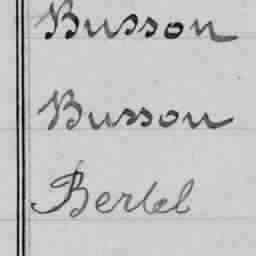 Busson
Busson
Bertel